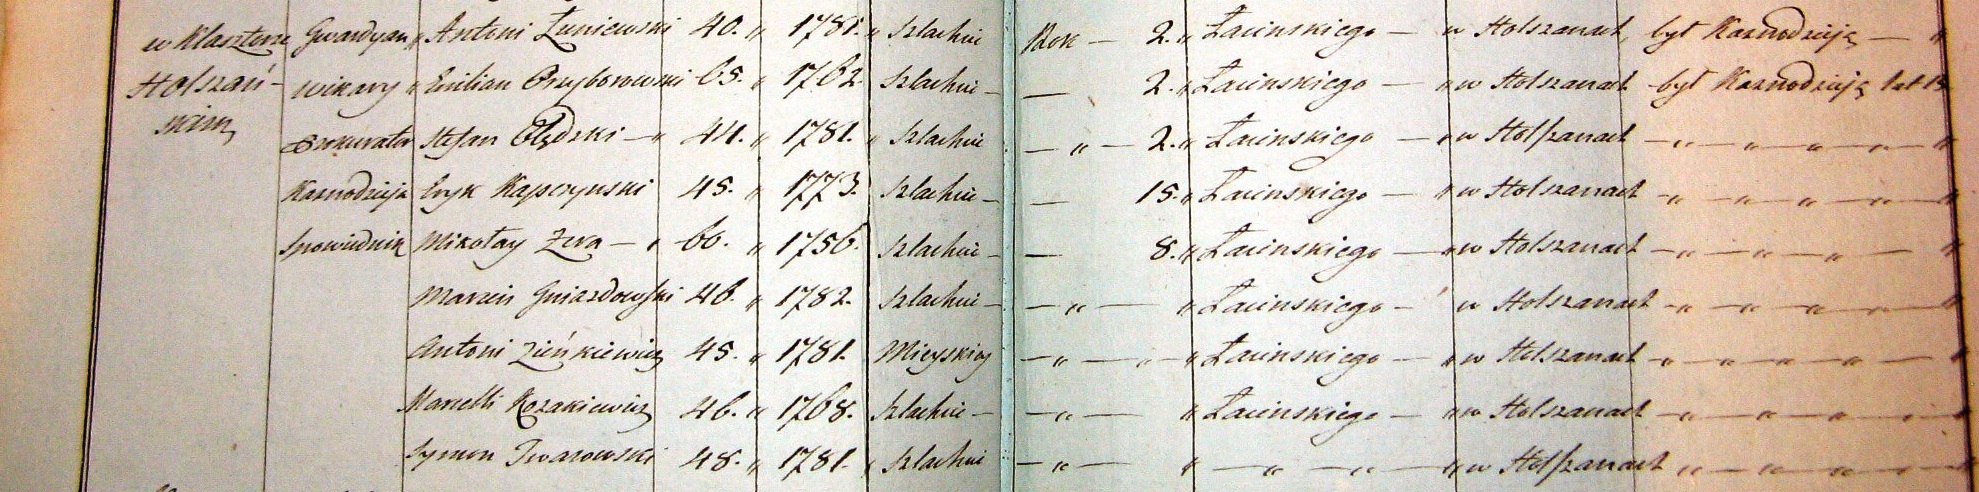 w Klasztorze Gwardyan „ Antoni Żuniewski 40. „ 1781. „ Szlachcic Rok — 2. „ Łacinskiego — w Holszanach, był Kaznodzieją — „
Holszań- wikary „ Emilian Przyborowski 65. „ 1762. Szlachcic — — 2. „ Łacinskiego — „ w Holszanach był Kaznodzieją lat
skim Prokurator Stefan — „ 44. „ 1781. „ Szlachcic — „ — 2. „ Łacinskiego — „ w Holszanach — „ — „ — „ — „ — „
Kaznodzieja Eryk Kasperzynski 45. „ 1773. Szlachcic — — 15. „ Łacinskiego — „ w Holszanach — „ — „ — „ — „ — „
Spowiednik Mikołay — „ 60. „ 1756. Szlachcic — — 8. „ Łacinskiego — „ w Holszanach — „ — „ — „ — „
Marcin Gniazdowski 46. „ 1782. Szlachcic — — „ — „ Łacinskiego — w Holszanach — „ — „ — „ — „ — „
Antoni Zieńkiewicz 45. „ 1781. Mieyskiey — „ — „ — „ Łacinskiego — „ w Holszanach — „ — „ — „ — „ — „
Marcelli Kozakiewicz 46. „ 1768. Szlachcic — — „ — „ Łacinskiego — „ w Holszanach — „ — „ — „ — „ — „
Symon Twarowski 48. „ 1781. „ Szlachcic — „ — „ — „ — „ — „ w Holszanach „ — „ — „ — „ — „